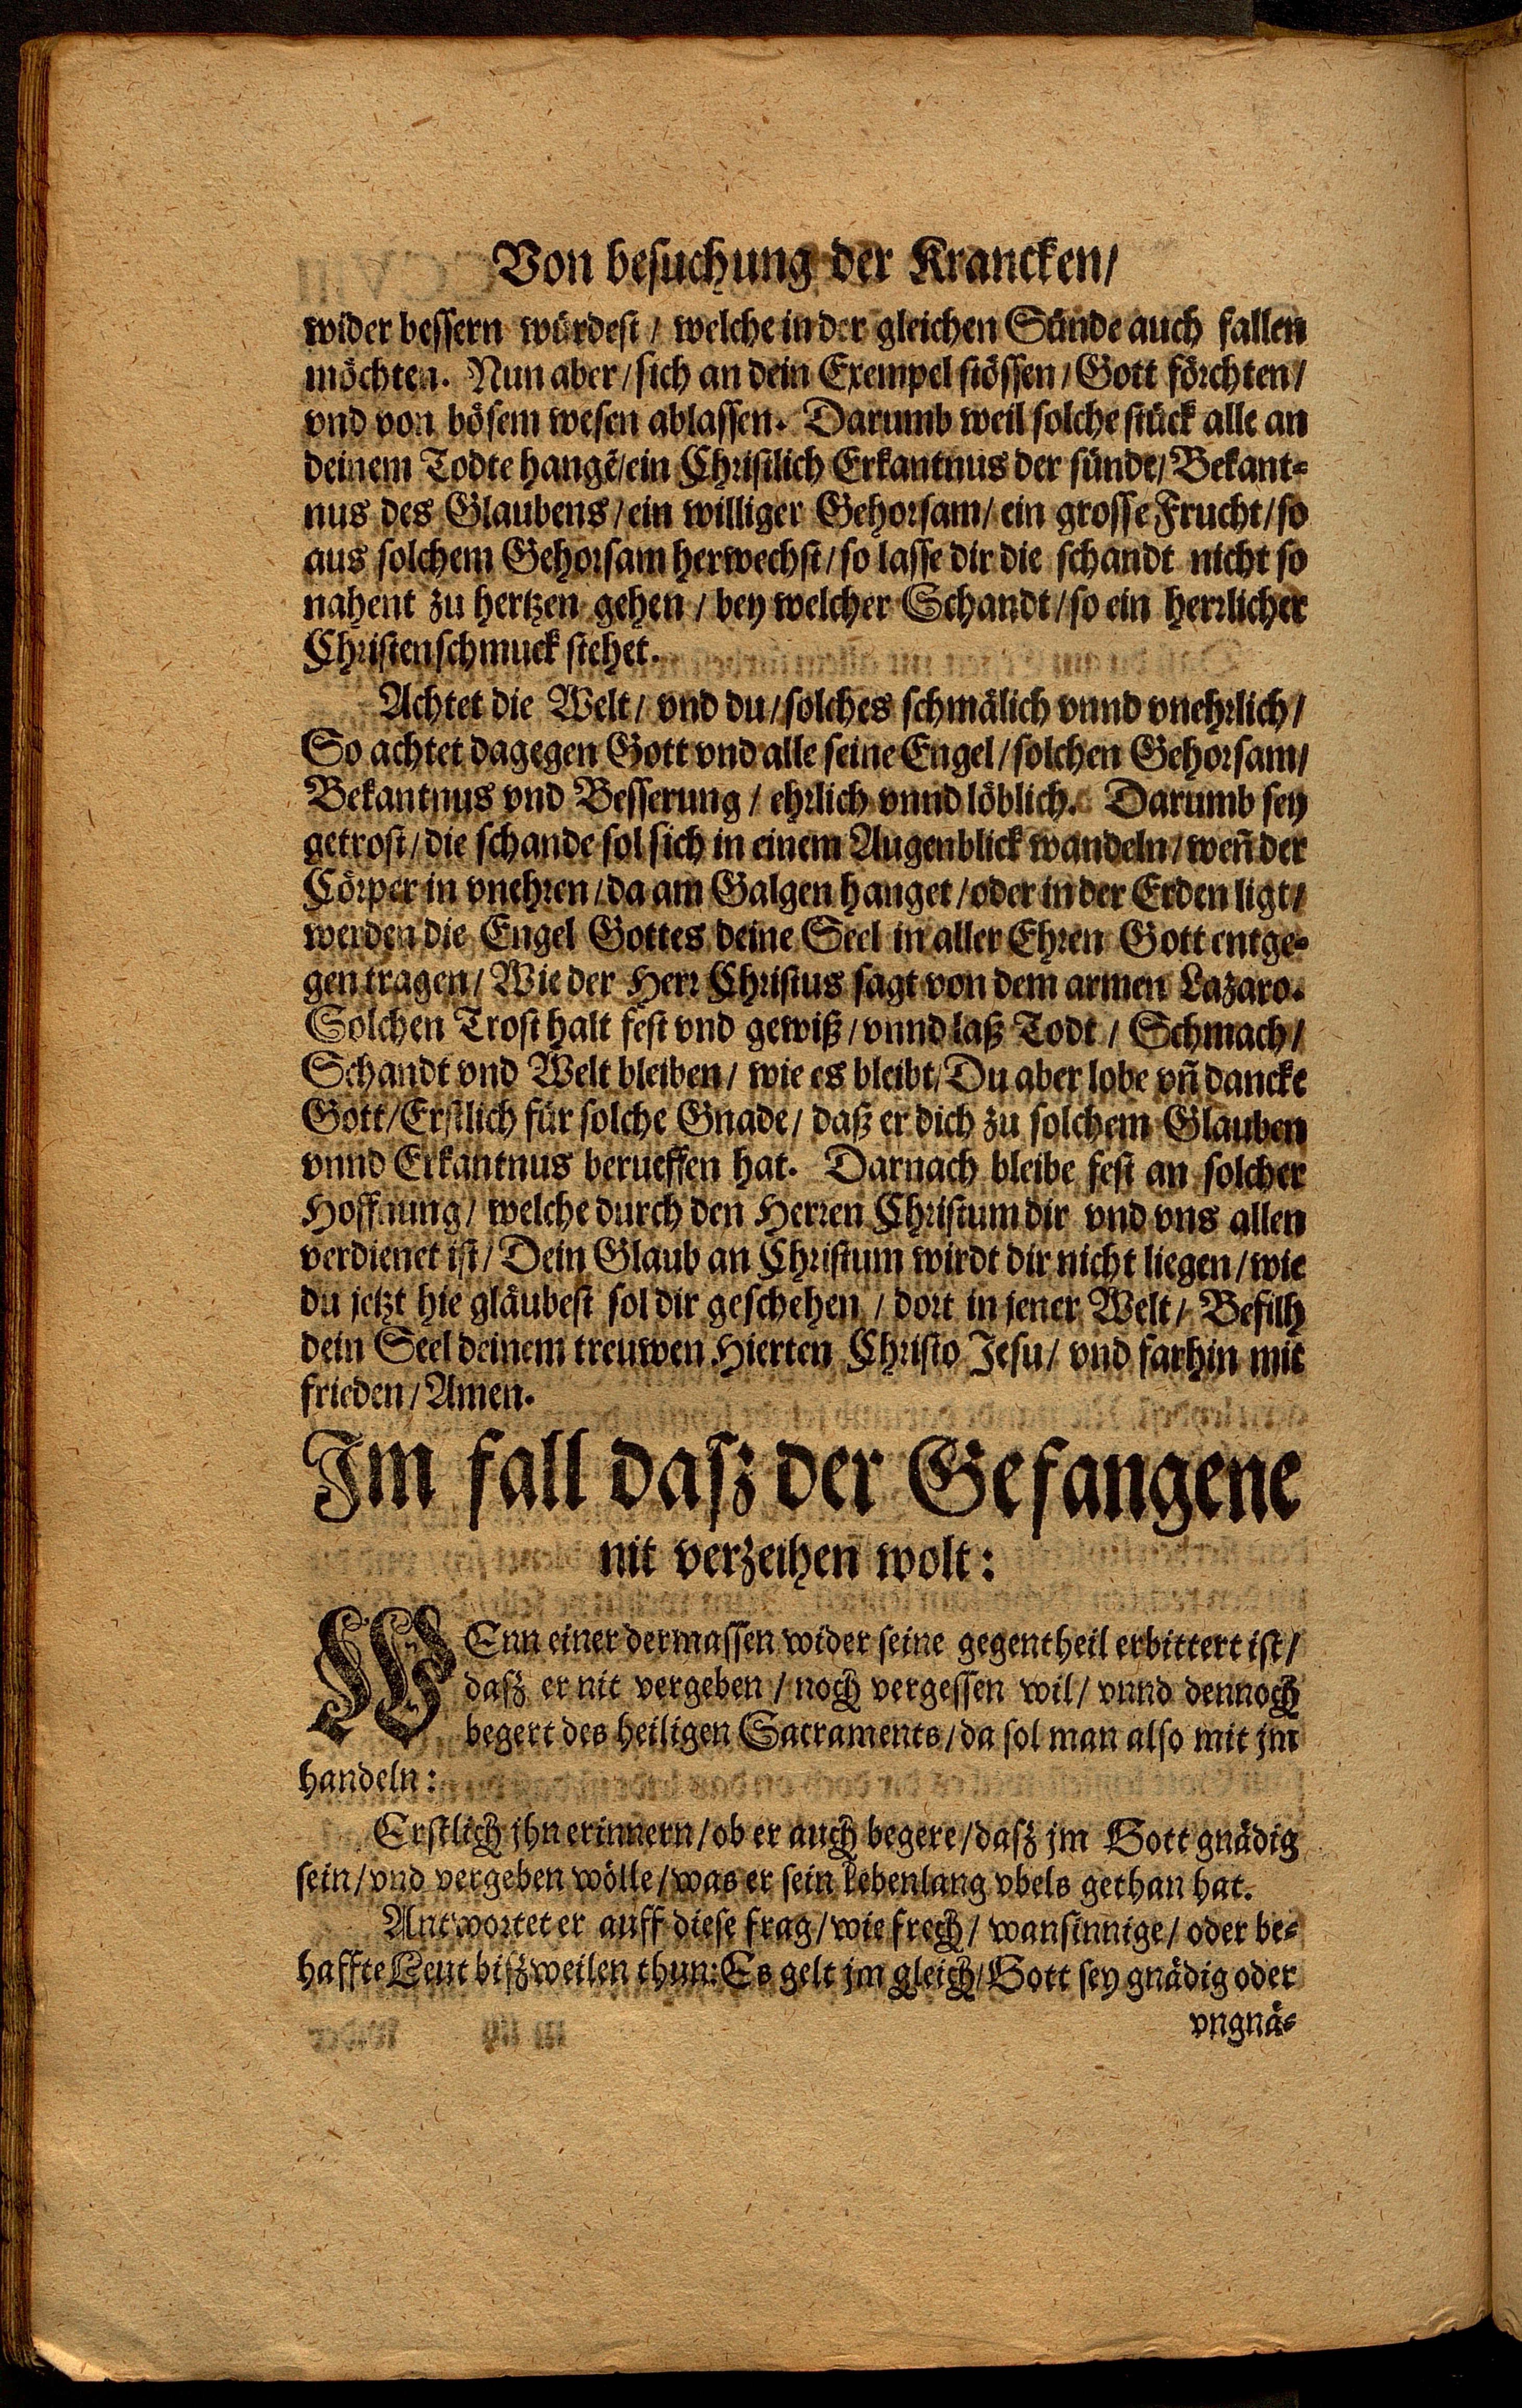 Von besuchung der Krancken/
wider bessern würdest / welche in der gleichen Sünde auch fallen
möchten. Nun aber / sich an dein Exempel stössen / Gott förchten /
vnd von bösem wesen ablassen. Darumb weil solche stück alle an
deinem Todte hangẽ/ein Christlich Erkantnus der sünde/ Bekant-
nus des Glaubens / ein williger Gehorsam / ein grosse Frucht / so
aus solchem Gehorsam herwechst / so lasse dir die schandt nicht so
nahent zu hertzen gehen / bey welcher Schandt / so ein herrlicher
Christenschmuck stehet.
Achtet die Welt / vnd du / solches schmälich vnnd vnehrlich /
So achtet dagegen Gott vnd alle seine Engel / solchen Gehorsam /
Bekantnus vnd Besserung / ehrlich vnnd löblich. Darumb sey
getrost / die schande sol sich in einem Augenblick wandeln / weñ der
Cörper in vnehren / da am Galgen hanget / oder in der Erden ligt /
werden die Engel Gottes deine Seel in aller Ehren Gott entge-
gen tragen / Wie der Herr Christus sagt von dem armen Lazaro.
Solchen Trost halt fest vnd gewiß / vnnd laß Todt / Schmach /
Schandt vnd Welt bleiben / wie es bleibt / Du aber lobe vñ dancke
Gott / Erstlich für solche Gnade / daß er dich zu solchem Glauben
vnnd Erkantnus berueffen hat. Darnach bleibe fest an solcher
Hoffnung / welche durch den Herren Christum dir vnd vns allen
verdienet ist / Dein Glaub an Christum wirdt dir nicht liegen / wie
du jetzt hie gläubest sol dir geschehen / dort in jener Welt / Befilh
dein Seel deinem treuwen Hierten Christo Jesu / vnd farhin mit
frieden / Amen.
Im fall dasz der Gefangene
nit verzeihen wolt:
WEnn einer dermassen wider seine gegentheil erbittert ist /
dasz er nit vergeben / noch vergessen wil / vnnd dennoch
begert des heiligen Sacraments / da sol man also mit jm
handeln:
Erstlich jhn erinnern / ob er auch begere / dasz jm Gott gnädig
sein / vnd vergeben wölle / was er sein Lebenlang vbels gethan hat.
Antwortet er auff diese frag / wie frech / wansinnige / oder be-
haffte Leut biszweilen thun: Es gelt jm gleich / Gott sey gnädig oder
vngnä-